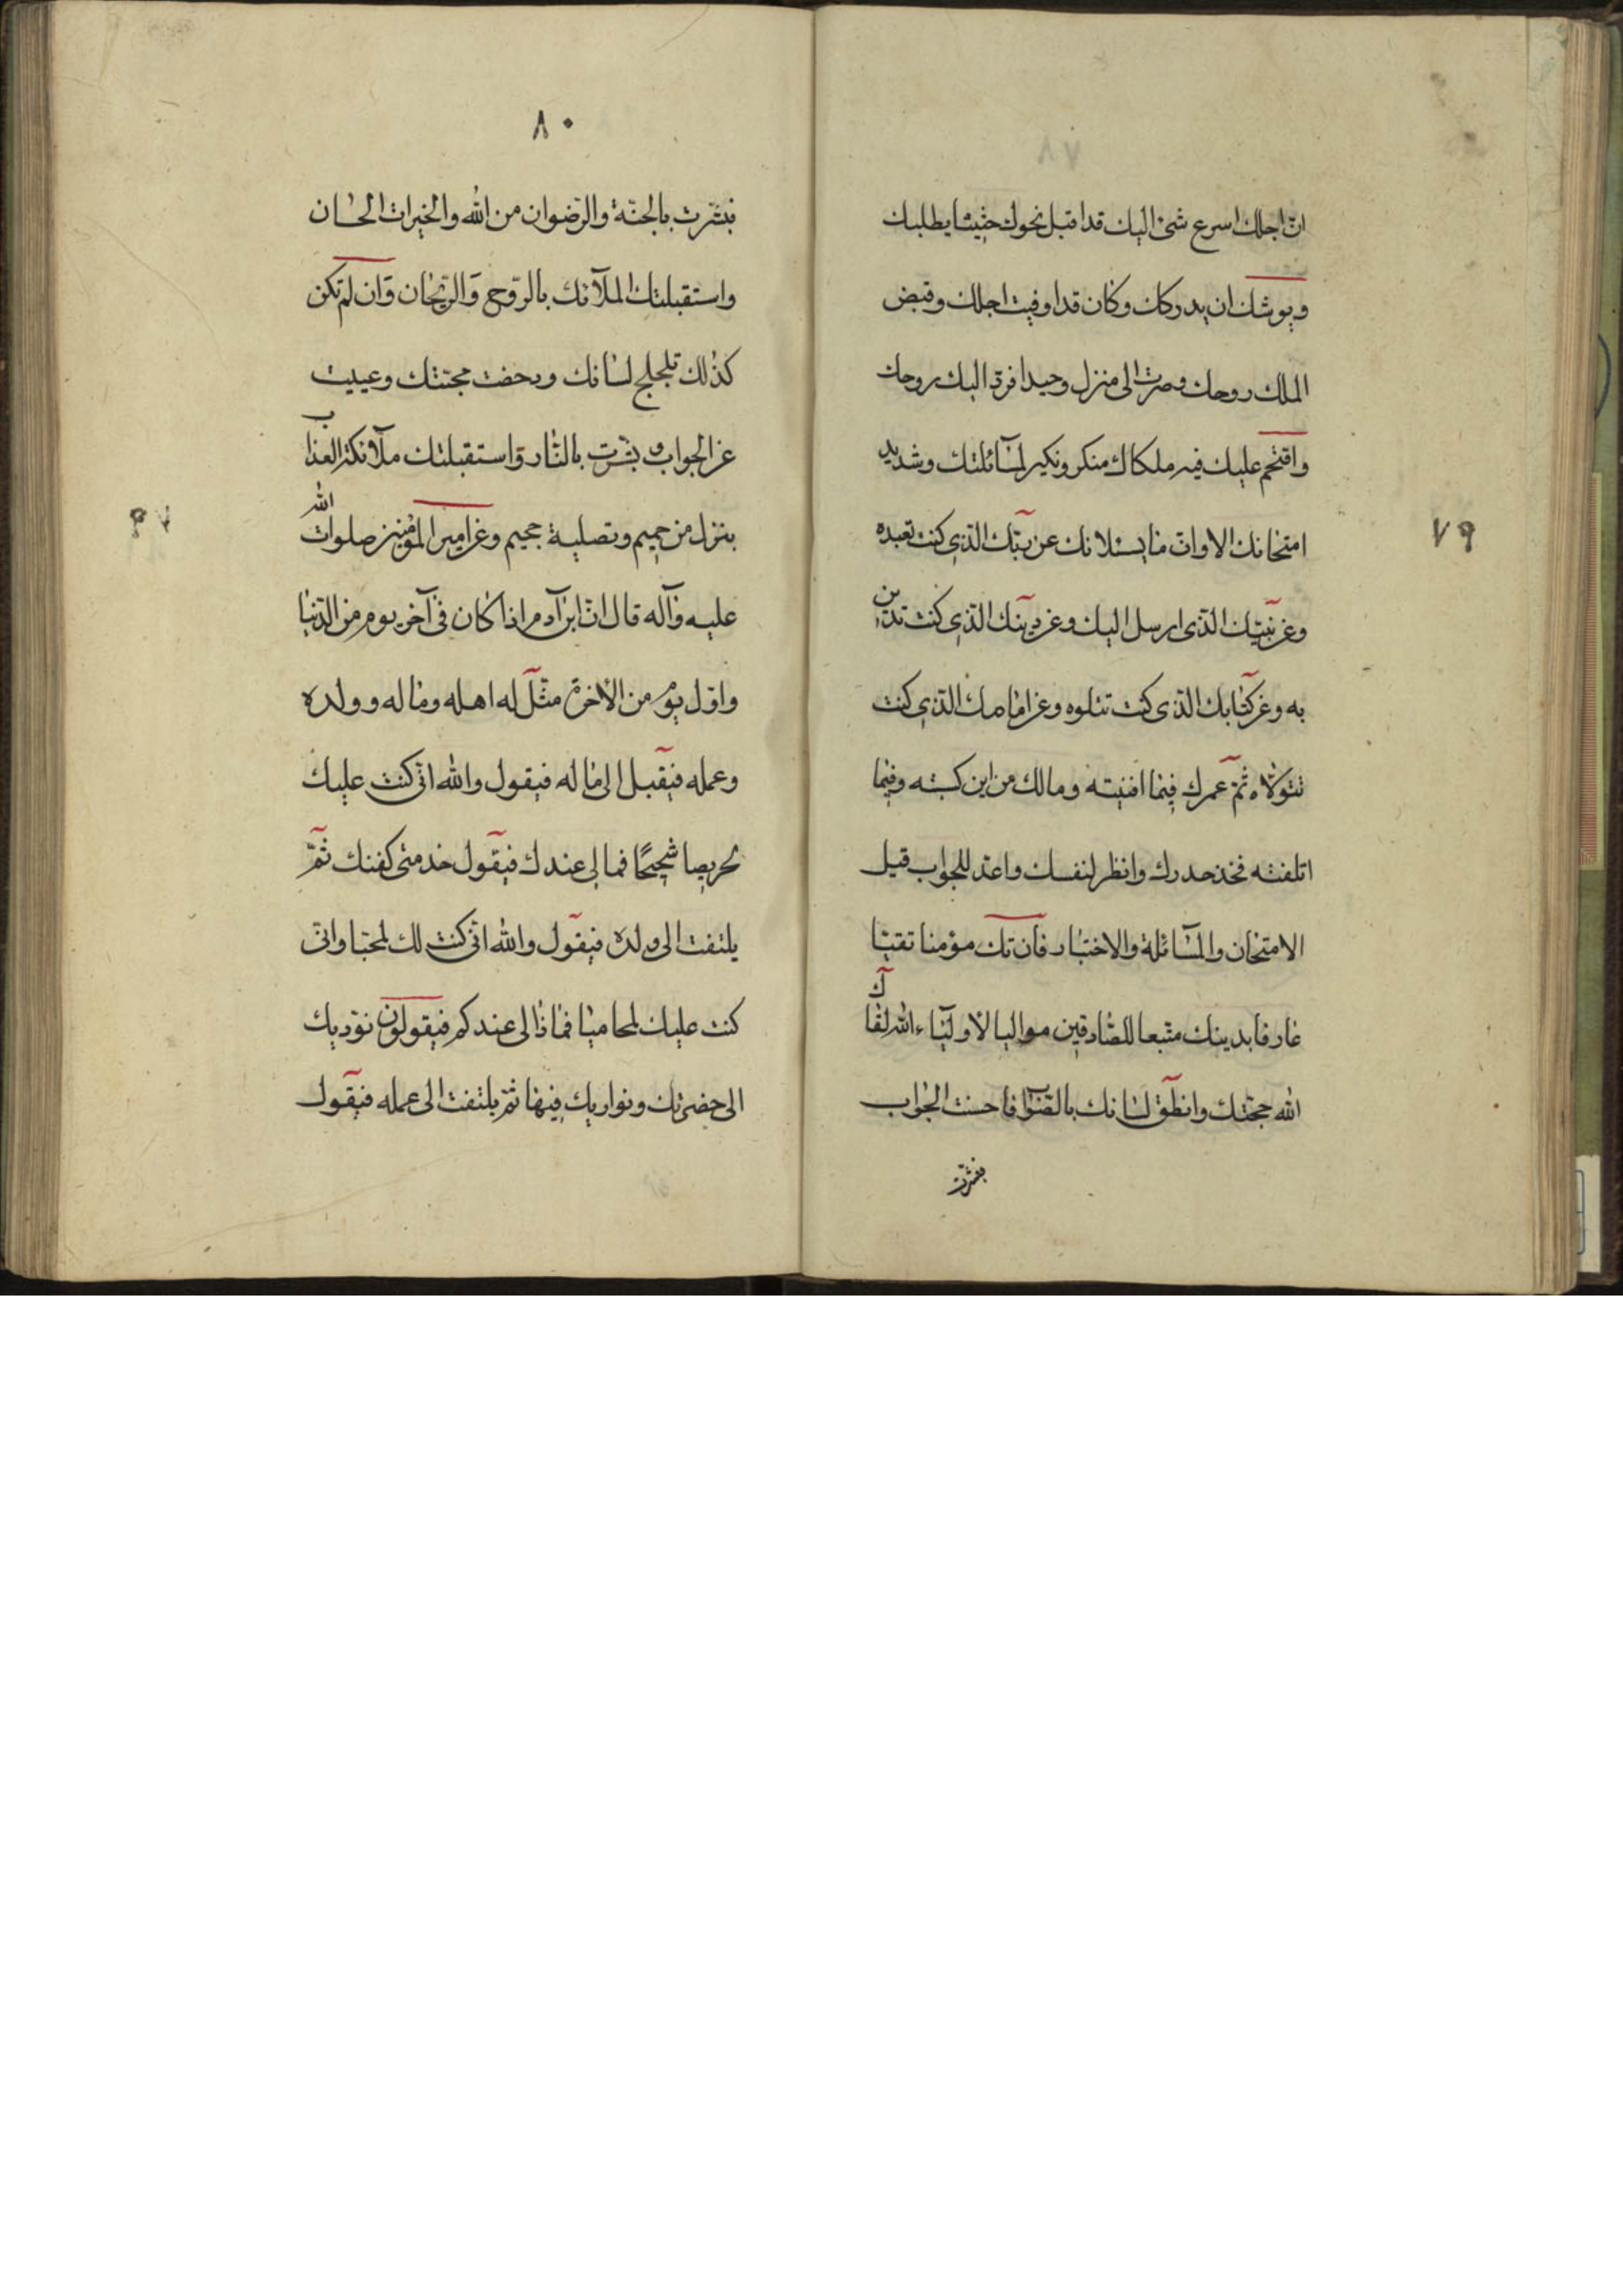 ان اجلك اسرع شئ اليك قد اقبل نحوك حثيثا يطلبك
ويوشك ان يدركك وكان قد اوفيت اجلك وقبض
الملك روحك وصرت الى منزل وحيدا فرد اليك روحك
واقتحم عليك فيه ملكاك منكر ونكير لمسآئلتك وشديد
امتحانك الا وان ما يسئلانك عن ربّك الذي كنت تعبده
وعن نبيّك الذي ارسل اليك وعن دينك الذي كنت تدين
به وعن كتابك الذي كنت تتلوه وعن امامك الذي كنت
تتولاه ثمّ عمرك فيما افنيته ومالك من اين كسبته وفيما
اتلفته فخذ حدرك وانظر لنفسك واعد للجواب قبل
الامتحان والمسآئلة والاختبار فان تك مؤمنا تقيّا
عارفا بدينك متّبعا للصّادقين مواليا لاوليآء الله لقاك
الله حجّتك وانطق لسانك بالصّواب فاحسنت الجواب
فبشّرت
٧٩
٨٠
فبشّرت بالجنّة والرّضوان من الله والخيرات الحسان
واستقبلتك الملآئك بالرّوح والرّيحان وان لم تكن
كذلك تلجلج لسانك ودحضت حجّتك وعييت
عن الجواب وبشّرت بالنّار واستقبلتك ملآئكة العذاب
بنزل من حميم وتصلية جحيم وعن امير المؤمنين صلوات الله
عليه وآله قال انّ ابن آدم اذا كان في آخر يوم من الدّنيا
واوّل يوم من الآخرة مثّل له اهله وماله وولده
وعمله فيقبل الى ماله فيقول والله انّي كنت عليك
لحريصا شحيحًا فما لي عندك فيقول خذ منّي كفنك ثمّ
يلتفت الى ولده فيقول والله انّي كنت لك لمحبّا وانّي
كنت عليك لمحاميا فماذا لي عندكم فيقولون نؤديك
الى حضرتك ونواريك فيها ثمّ يلتفت الى عمله فيقول